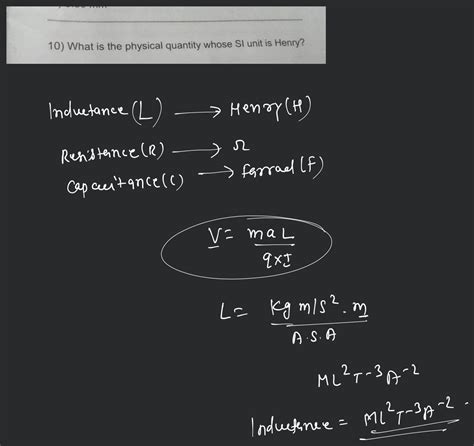 10) What is the physical quantity whose SI unit is Henry?
Inductance (L) → Henry (H)
Resistance (R) → Ω
Capacitance (C) → farrad (F)
V = maL
q×I
L = Kg m/s². m
A·S·A
ML²T⁻³A⁻²
Inductance = ML²T⁻³A⁻²